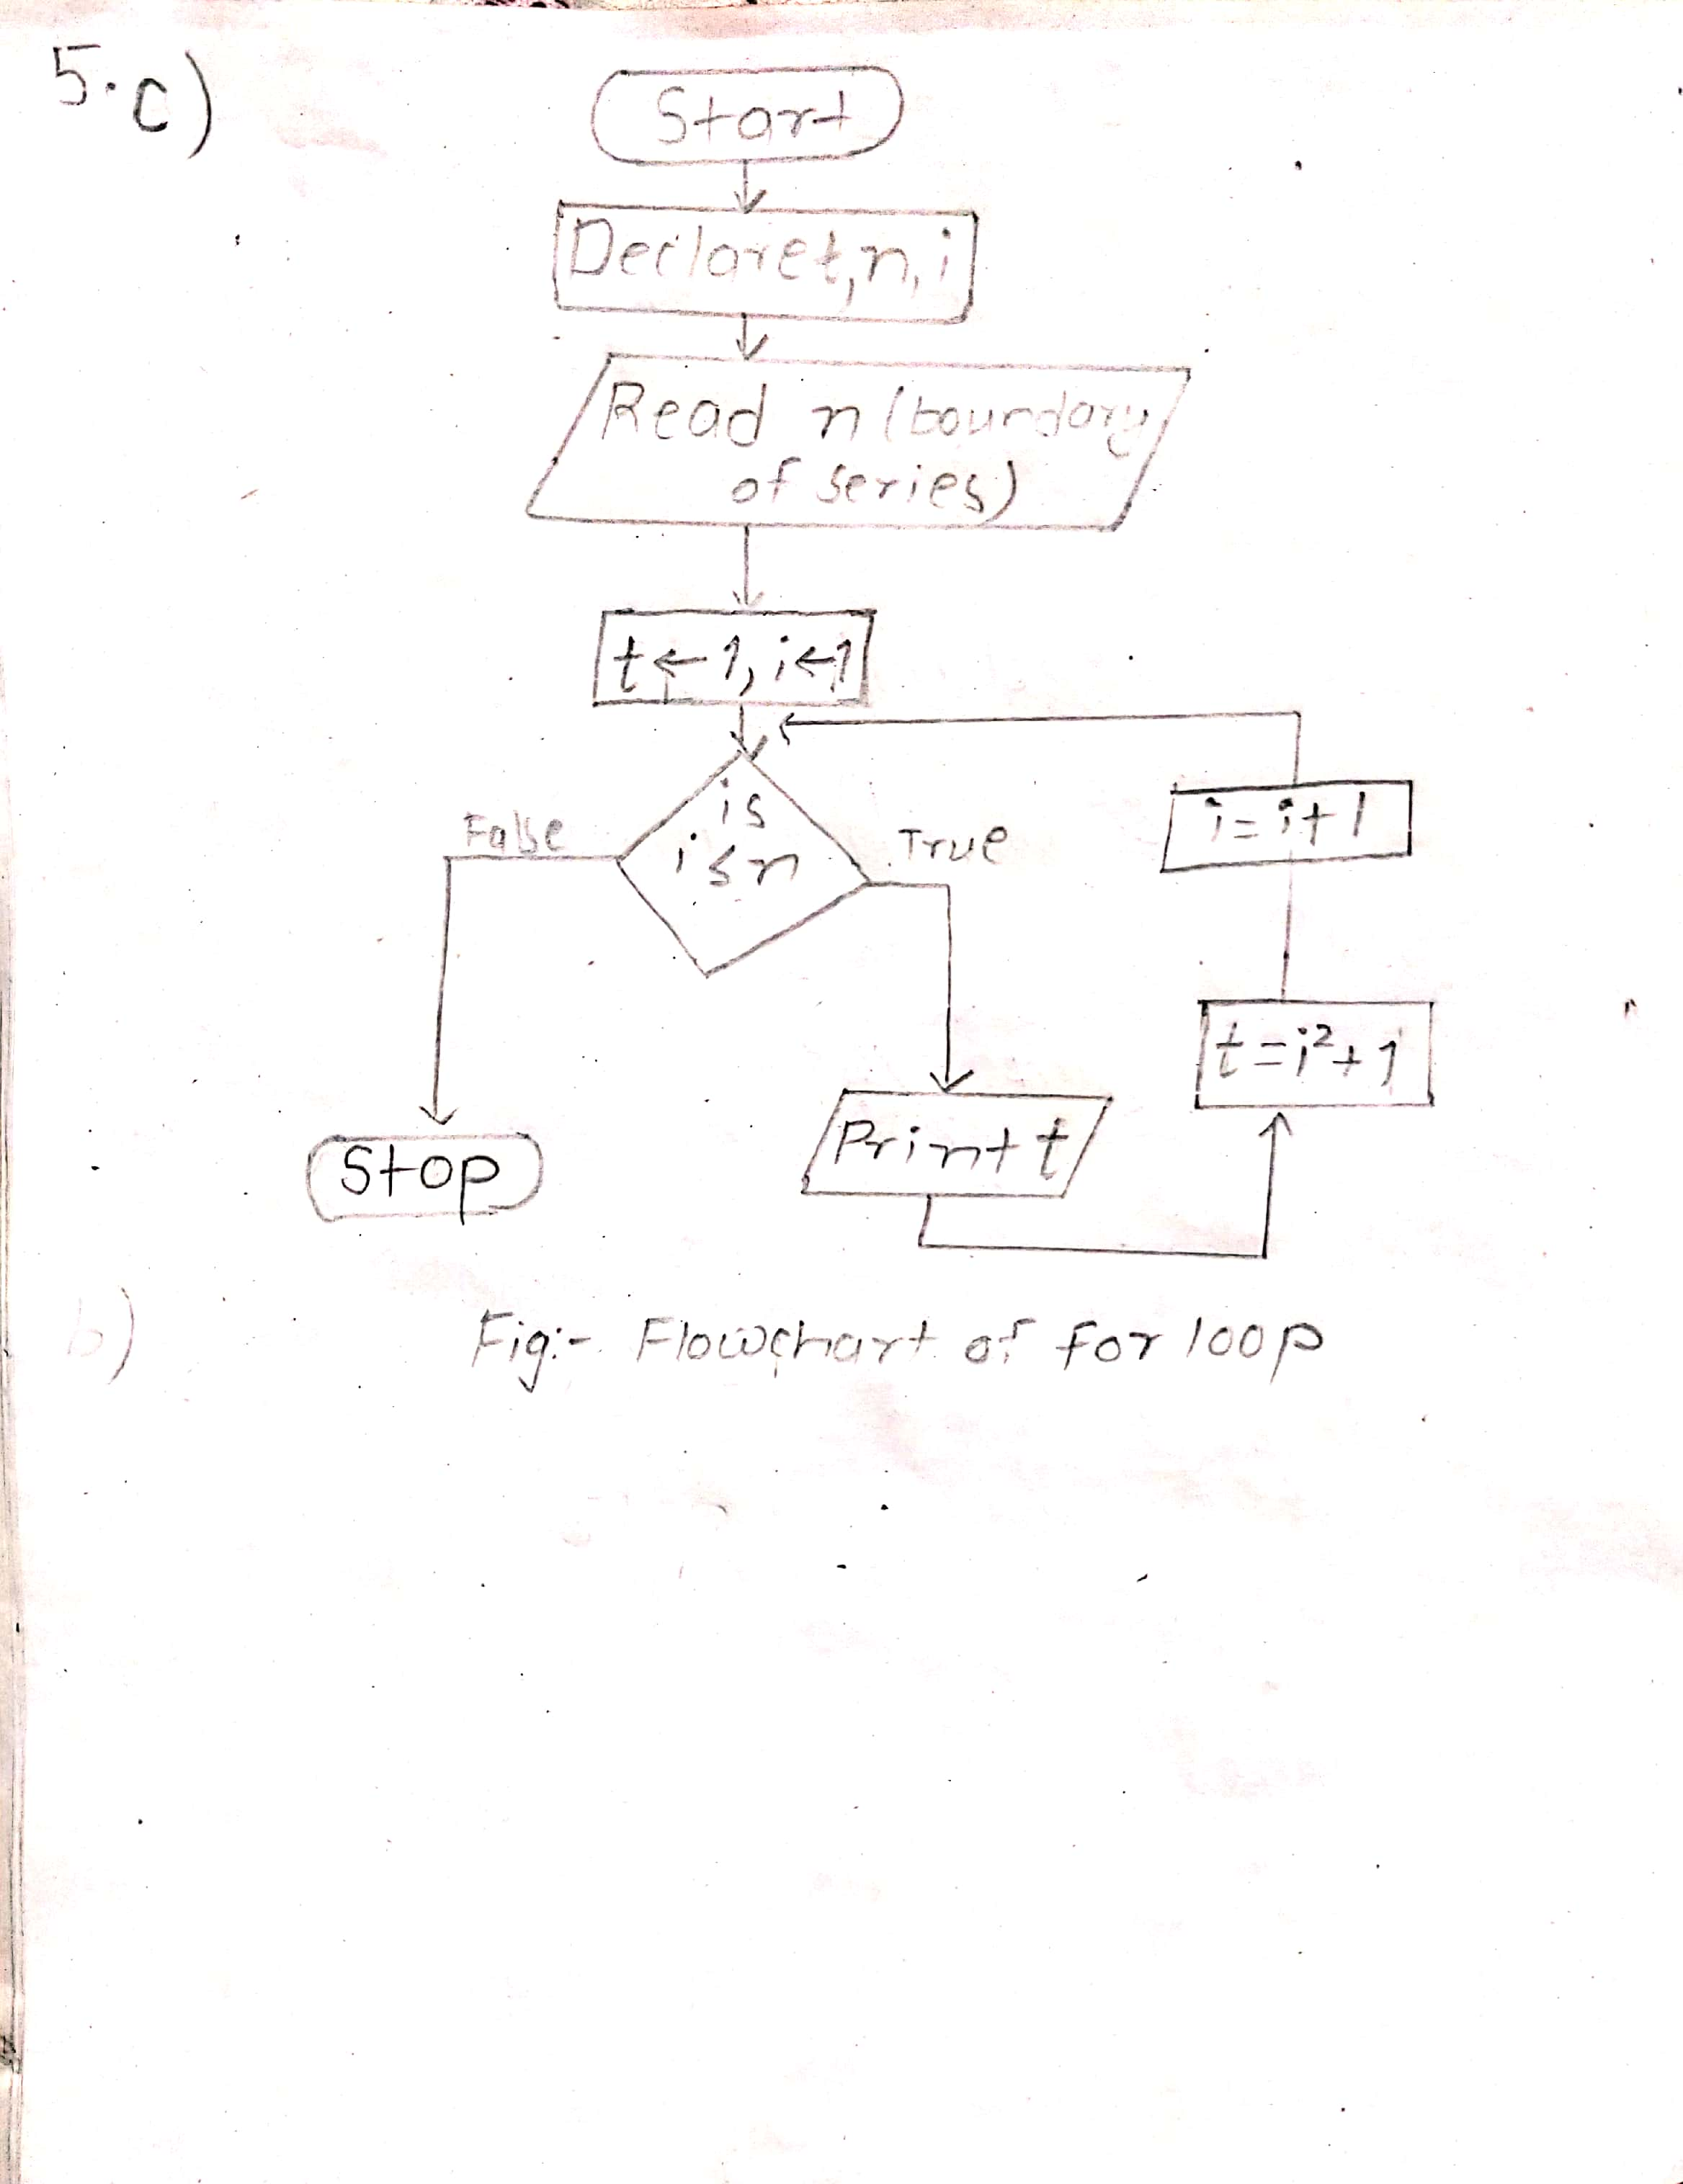 5.c)
Start
Declare t, n, i
Read n (boundary
of series)
t ← 1, i ← 1
is
i ≤ n
False
True
i = i + 1
t = i² + 1
Print t
Stop
b)
Fig:- Flowchart of for loop